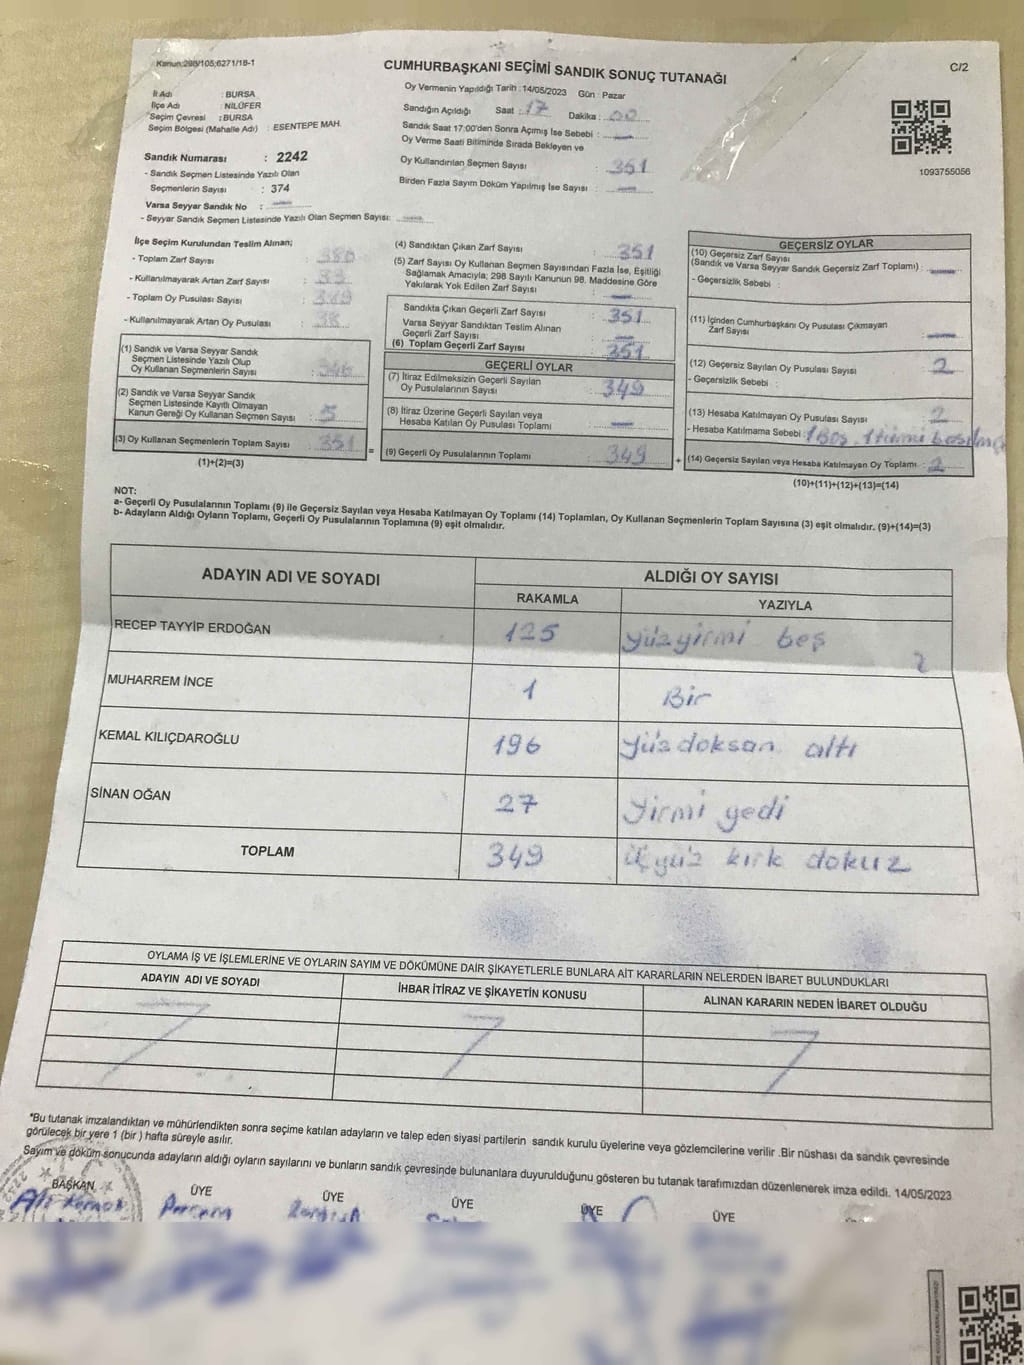 Kanun:298/105;6271/18-1
C/2
CUMHURBAŞKANI SEÇİMİ SANDIK SONUÇ TUTANAĞI
İl Adı : BURSA
İlçe Adı : NİLÜFER
Seçim Çevresi : BURSA
Seçim Bölgesi (Mahalle Adı) : ESENTEPE MAH.
Sandık Numarası : 2242
- Sandık Seçmen Listesinde Yazılı Olan
Seçmenlerin Sayısı : 374
Varsa Seyyar Sandık No : —
- Seyyar Sandık Seçmen Listesinde Yazılı Olan Seçmen Sayısı: —
Oy Vermenin Yapıldığı Tarih : 14/05/2023 Gün : Pazar
Sandığın Açıldığı Saat : 17 Dakika : 00
Sandık Saat 17:00'den Sonra Açılmış İse Sebebi : —
Oy Verme Saati Bitiminde Sırada Bekleyen ve
Oy Kullandırılan Seçmen Sayısı : 351
Birden Fazla Sayım Döküm Yapılmış İse Sayısı : —
1093755056
İlçe Seçim Kurulundan Teslim Alınan;
- Toplam Zarf Sayısı : 380
- Kullanılmayarak Artan Zarf Sayısı : 33
- Toplam Oy Pusulası Sayısı : 389
- Kullanılmayarak Artan Oy Pusulası : 38
(1) Sandık ve Varsa Seyyar Sandık
Seçmen Listesinde Yazılı Olup
Oy Kullanan Seçmenlerin Sayısı : 346
(2) Sandık ve Varsa Seyyar Sandık
Seçmen Listesinde Kayıtlı Olmayan
Kanun Gereği Oy Kullanan Seçmen Sayısı : 5
(3) Oy Kullanan Seçmenlerin Toplam Sayısı : 351
(1)+(2)=(3)
(4) Sandıktan Çıkan Zarf Sayısı : 351
(5) Zarf Sayısı Oy Kullanan Seçmen Sayısından Fazla İse, Eşitliği
Sağlamak Amacıyla; 298 Sayılı Kanunun 98. Maddesine Göre
Yakılarak Yok Edilen Zarf Sayısı : —
Sandıkta Çıkan Geçerli Zarf Sayısı : 351
Varsa Seyyar Sandıktan Teslim Alınan
Geçerli Zarf Sayısı : —
(6) Toplam Geçerli Zarf Sayısı : 351
GEÇERLİ OYLAR
(7) İtiraz Edilmeksizin Geçerli Sayılan
Oy Pusulalarının Sayısı : 349
(8) İtiraz Üzerine Geçerli Sayılan veya
Hesaba Katılan Oy Pusulası Toplamı : —
= (9) Geçerli Oy Pusulalarının Toplamı : 349 +
GEÇERSİZ OYLAR
(10) Geçersiz Zarf Sayısı
(Sandık ve Varsa Seyyar Sandık Geçersiz Zarf Toplamı) : —
- Geçersizlik Sebebi :
(11) İçinden Cumhurbaşkanı Oy Pusulası Çıkmayan
Zarf Sayısı : —
(12) Geçersiz Sayılan Oy Pusulası Sayısı : 2
- Geçersizlik Sebebi :
(13) Hesaba Katılmayan Oy Pusulası Sayısı : 2
- Hesaba Katılmama Sebebi : 1 Boş,
(14) Geçersiz Sayılan veya Hesaba Katılmayan Oy Toplamı : 2
(10)+(11)+(12)+(13)=(14)
NOT:
a- Geçerli Oy Pusulalarının Toplamı (9) ile Geçersiz Sayılan veya Hesaba Katılmayan Oy Toplamı (14) Toplamları, Oy Kullanan Seçmenlerin Toplam Sayısına (3) eşit olmalıdır. (9)+(14)=(3)
b- Adayların Aldığı Oyların Toplamı, Geçerli Oy Pusulalarının Toplamına (9) eşit olmalıdır.
ADAYIN ADI VE SOYADI
ALDIĞI OY SAYISI
RAKAMLA YAZIYLA
RECEP TAYYİP ERDOĞAN 125 yüzyirmi beş
2
MUHARREM İNCE 1 Bir
KEMAL KILIÇDAROĞLU 196 yüzdoksan altı
SİNAN OĞAN 27 yirmi yedi
TOPLAM 349 üçyüz kırk dokuz
OYLAMA İŞ VE İŞLEMLERİNE VE OYLARIN SAYIM VE DÖKÜMÜNE DAİR ŞİKAYETLERLE BUNLARA AİT KARARLARIN NELERDEN İBARET BULUNDUKLARI
ADAYIN ADI VE SOYADI İHBAR İTİRAZ VE ŞİKAYETİN KONUSU ALINAN KARARIN NEDEN İBARET OLDUĞU
*Bu tutanak imzalandıktan ve mühürlendikten sonra seçime katılan adayların ve talep eden siyasi partilerin sandık kurulu üyelerine veya gözlemcilerine verilir .Bir nüshası da sandık çevresinde
görülecek bir yere 1 (bir ) hafta süreyle asılır.
Sayım ve döküm sonucunda adayların aldığı oyların sayılarını ve bunların sandık çevresinde bulunanlara duyurulduğunu gösteren bu tutanak tarafımızdan düzenlenerek imza edildi. 14/05/2023
BAŞKAN ÜYE ÜYE ÜYE ÜYE ÜYE